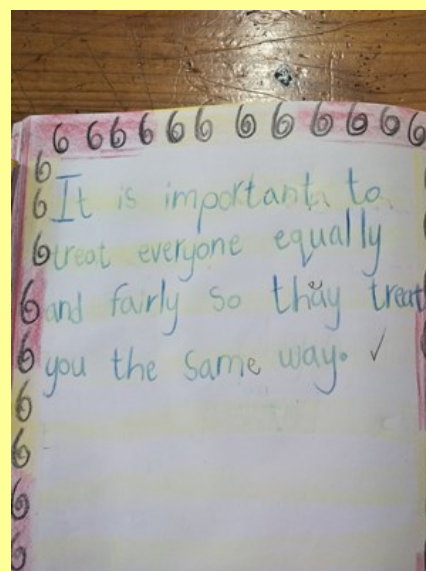 It is important to
treat everyone equally
and fairly so thay treat
you the same way.